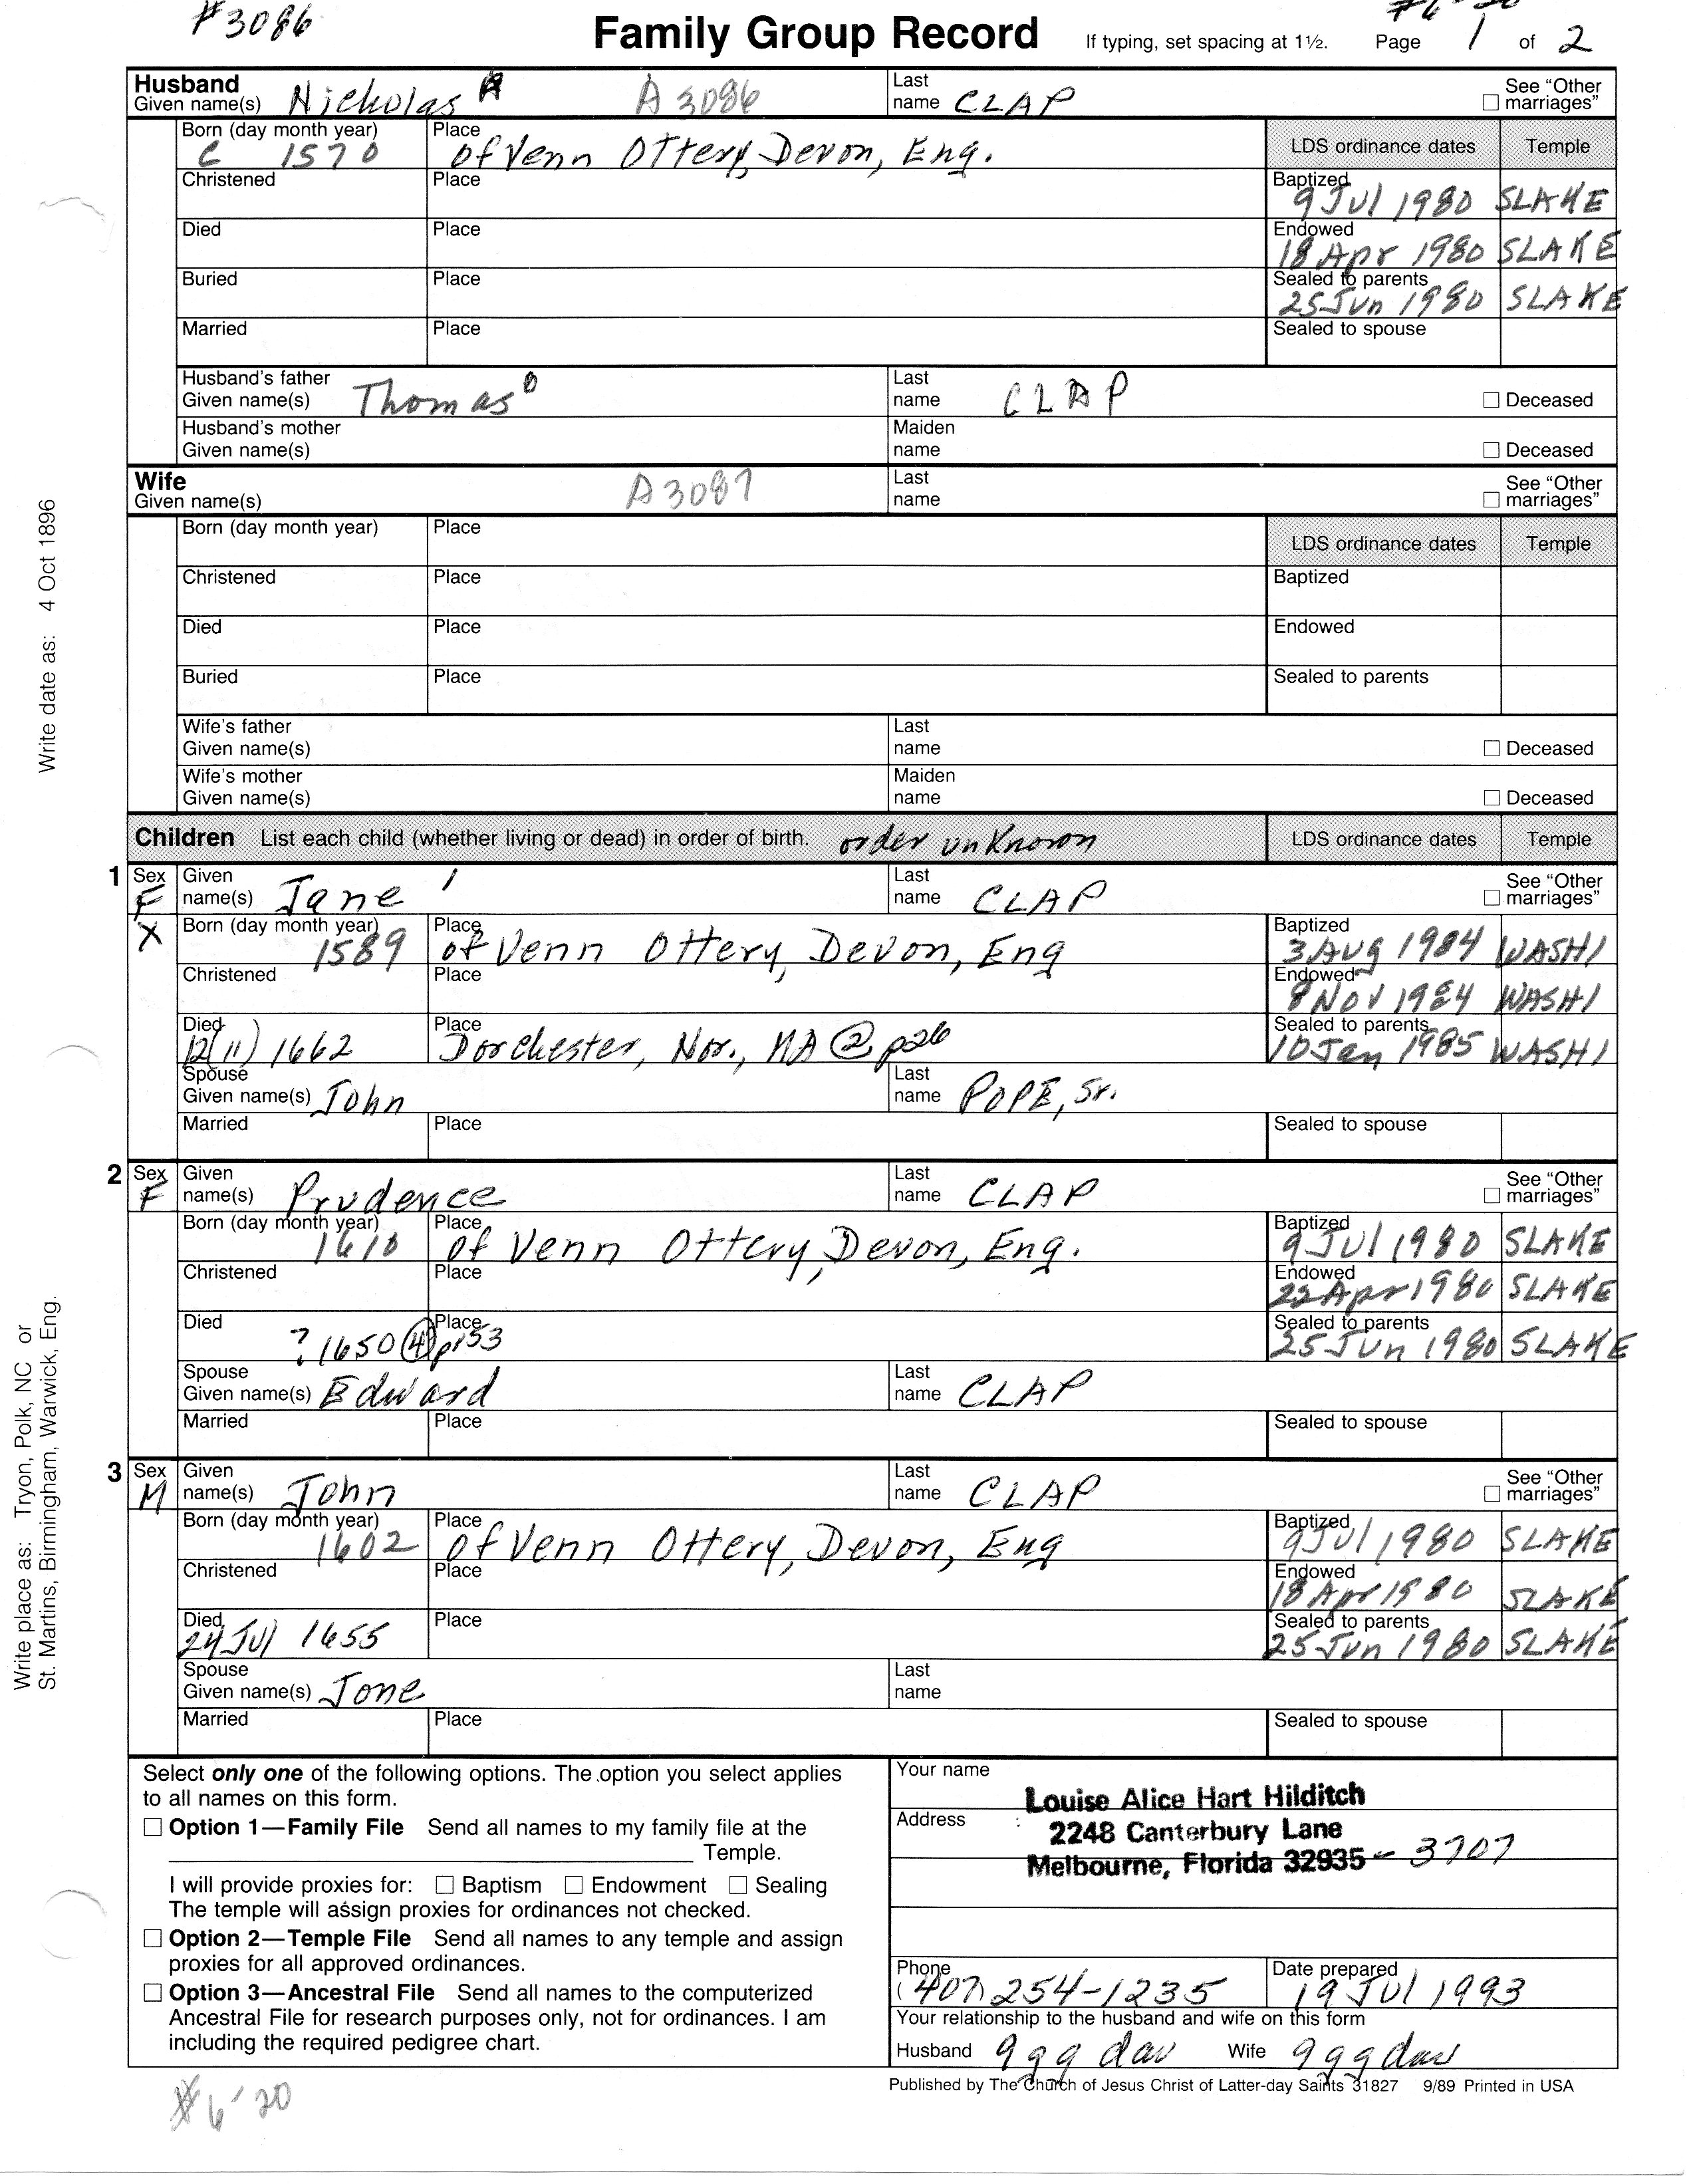 #3086
Family Group Record If typing, set spacing at 1½. Page 1 of 2
Husband
Given name(s) Nicholas A A3086 Last name CLAP See "Other marriages"
Born (day month year) C 1570 Place of Venn Ottery, Devon, Eng. LDS ordinance dates Temple
Christened Place Baptized 9 Jul 1980 SLAKE
Died Place Endowed 18 Apr 1980 SLAKE
Buried Place Sealed to parents 25 Jun 1980 SLAKE
Married Place Sealed to spouse
Husband's father Given name(s) Thomas Last name CLAP Deceased
Husband's mother Given name(s) Maiden name Deceased
Wife
Given name(s) A3087 Last name See "Other marriages"
Born (day month year) Place LDS ordinance dates Temple
Christened Place Baptized
Died Place Endowed
Buried Place Sealed to parents
Wife's father Given name(s) Last name Deceased
Wife's mother Given name(s) Maiden name Deceased
Children List each child (whether living or dead) in order of birth. order unknown LDS ordinance dates Temple
1 Sex F Given name(s) Jane 1 Last name CLAP See "Other marriages"
X Born (day month year) 1589 Place of Venn Ottery, Devon, Eng Baptized 3 Aug 1984 WASHI
Christened Place Endowed 8 Nov 1984 WASHI
Died 12(11) 1662 Place Dorchester, Nor., MA ② p26 Sealed to parents 10 Jan 1985 WASHI
Spouse Given name(s) John Last name POPE, Sr.
Married Place Sealed to spouse
2 Sex F Given name(s) Prudence Last name CLAP See "Other marriages"
Born (day month year) 1610 Place of Venn Ottery, Devon, Eng. Baptized 9 Jul 1980 SLAKE
Christened Place Endowed 22 Apr 1980 SLAKE
Died ? 1650 ④ p153 Place Sealed to parents 25 Jun 1980 SLAKE
Spouse Given name(s) Edward Last name CLAP
Married Place Sealed to spouse
3 Sex M Given name(s) John Last name CLAP See "Other marriages"
Born (day month year) 1602 Place of Venn Ottery, Devon, Eng Baptized 9 Jul 1980 SLAKE
Christened Place Endowed 18 Apr 1980 SLAKE
Died 24 Jul 1655 Place Sealed to parents 25 Jun 1980 SLAKE
Spouse Given name(s) Jone Last name
Married Place Sealed to spouse
Select only one of the following options. The option you select applies
to all names on this form.
Option 1—Family File Send all names to my family file at the
Temple.
I will provide proxies for: Baptism Endowment Sealing
The temple will assign proxies for ordinances not checked.
Option 2—Temple File Send all names to any temple and assign
proxies for all approved ordinances.
Option 3—Ancestral File Send all names to the computerized
Ancestral File for research purposes only, not for ordinances. I am
including the required pedigree chart.
Your name Louise Alice Hart Hilditch
Address 2248 Canterbury Lane
Melbourne, Florida 32935 - 3707
Phone (407) 254-1235 Date prepared 19 Jul 1993
Your relationship to the husband and wife on this form
Husband ggg dau Wife ggg dau
Published by The Church of Jesus Christ of Latter-day Saints 31827 9/89 Printed in USA
#6'20
Write date as: 4 Oct 1896
Write place as: Tryon, Polk, NC or
St. Martins, Birmingham, Warwick, Eng.